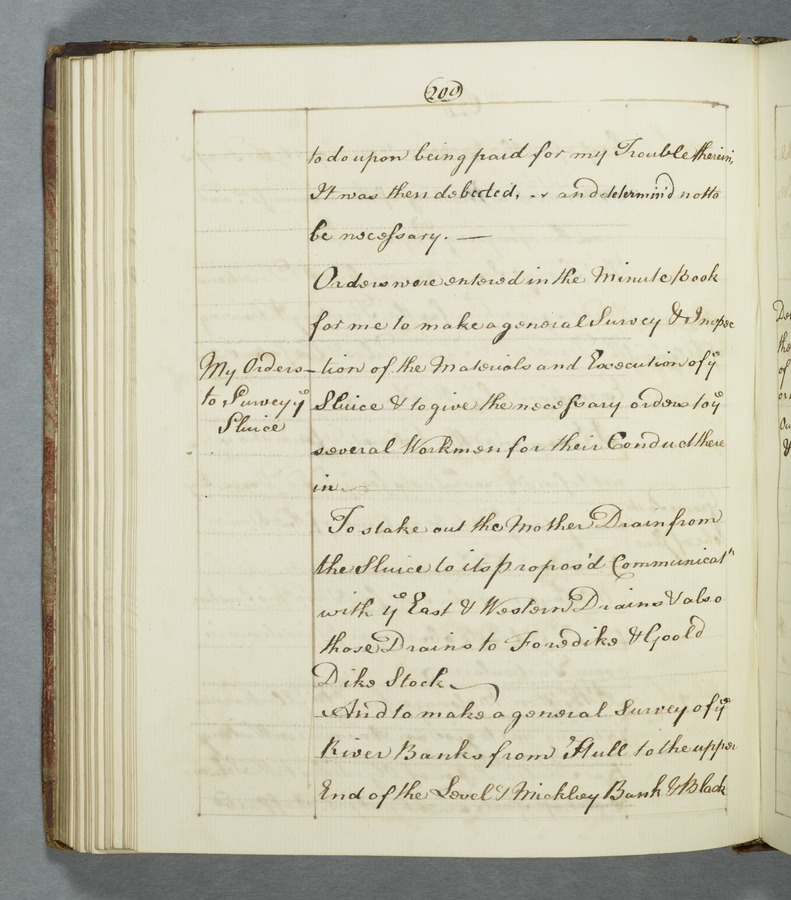 200
to do upon being paid for my Trouble therein,
It was then debected, and determin'd not to
be necessary. —
Orders were entered in the Minute Book
for me to make a general Survey & Inspec
My Orders
to Survey ye
Sluice
-tion of the Materials and Execution of ye
Sluice & to give the necessary orders to ye
several Workmen for their Conduct there
in
To stake out the Mother Drain from
the Sluice to its propos'd Communicatn
with ye East & Western Drains & also
those Drains to Foredike & Goold
Dike Stock
And to make a general Survey of ye
River Banks from Hull to the upper
End of the Level & Mickley Bank & Black